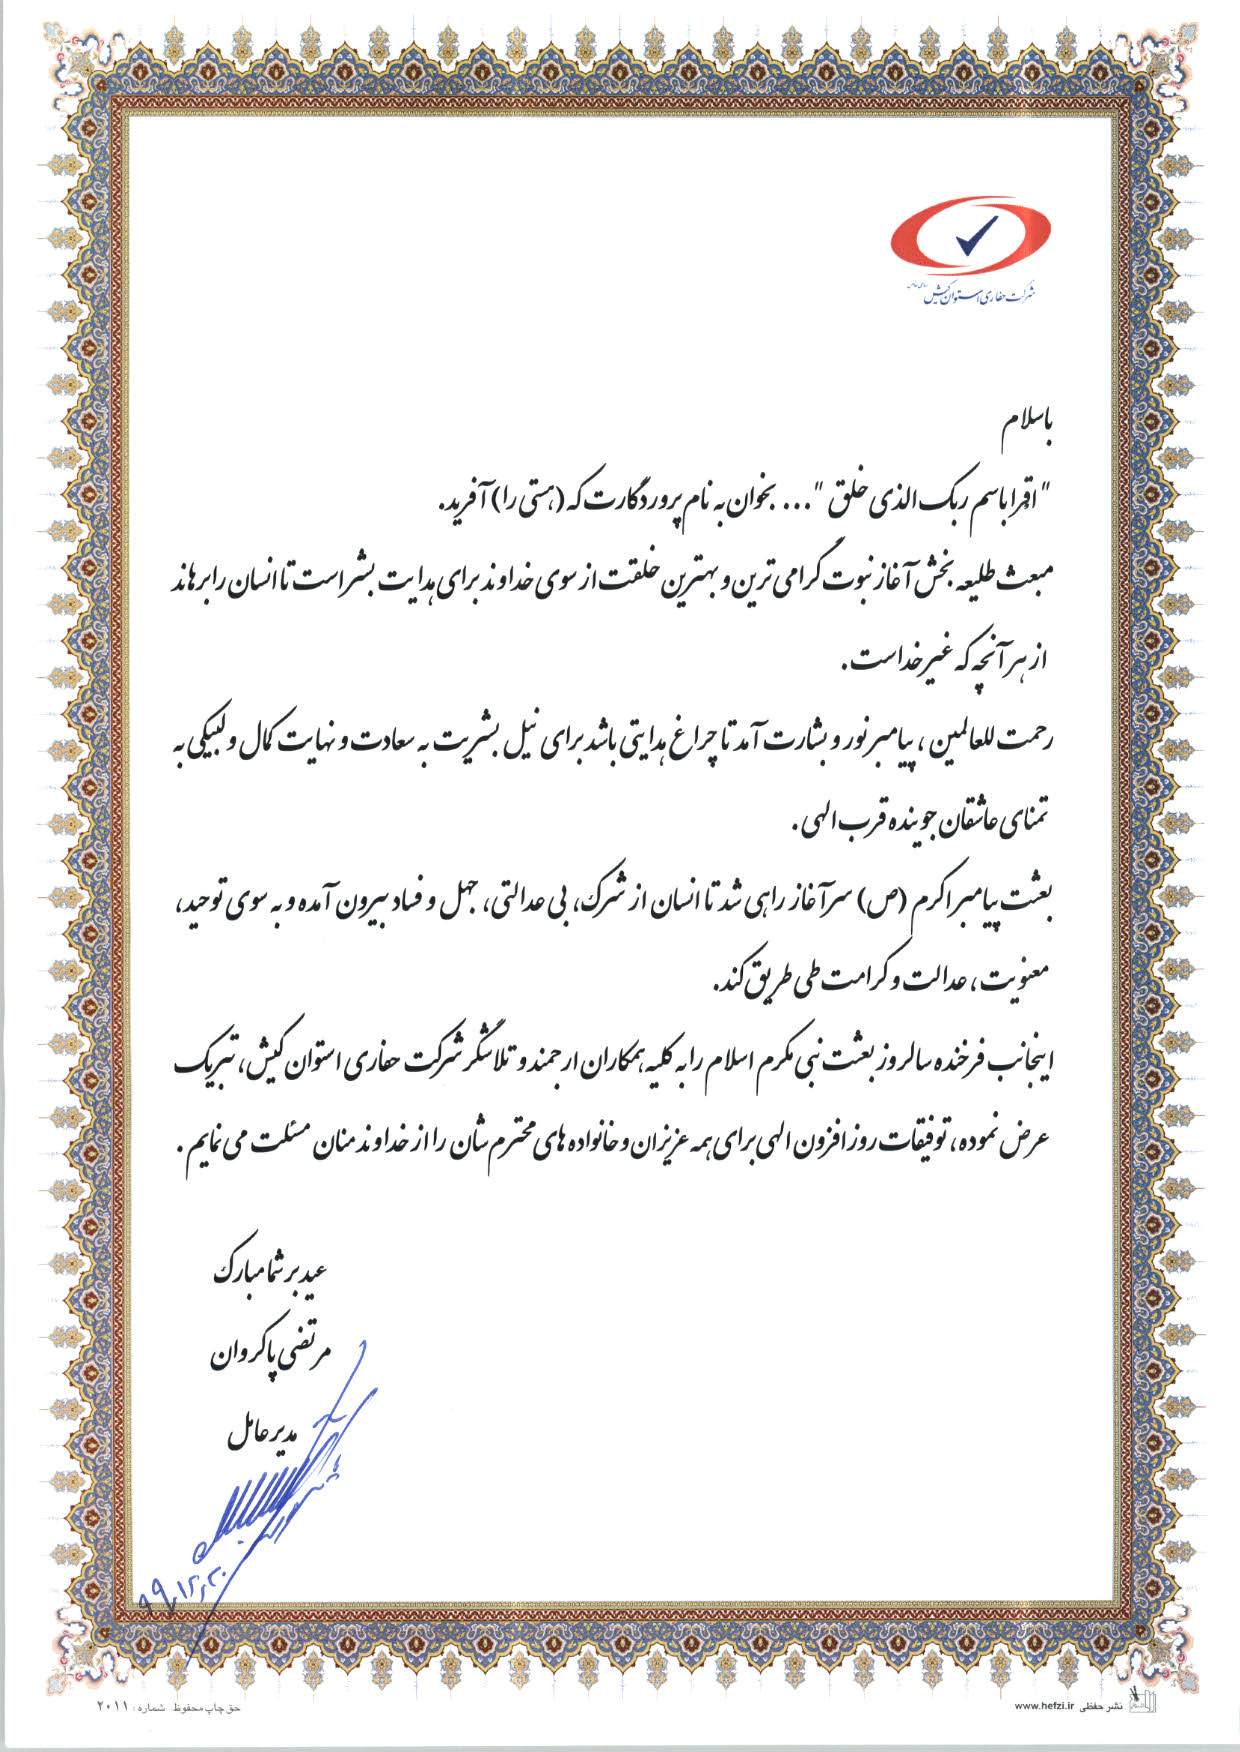 شرکت حفاری استوان کیش
باسلام
"اقرا باسم ربک الذی خلق "... بخوان به نام پروردگارت که (هستی را) آفرید.
مبعث طلیعه بخش آغاز نبوت گرامی ترین و بهترین خلقت از سوی خداوند برای هدایت بشر است تا انسان را برهاند
از هر آنچه که غیر خداست.
رحمت للعالمین ، پیامبر نور و بشارت آمد تا چراغ هدایتی باشد برای نیل بشریت به سعادت و نهایت کمال و لبیکی به
تمنای عاشقان جوینده قرب الهی.
بعثت پیامبر اکرم (ص) سرآغاز راهی شد تا انسان از شرک، بی عدالتی، جهل و فساد بیرون آمده و به سوی توحید،
معنویت ، عدالت و کرامت طی طریق کند.
اینجانب فرخنده سالروز بعثت نبی مکرم اسلام را به کلیه همکاران ارجمند و تلاشگر شرکت حفاری استوان کیش، تبریک
عرض نموده، توفیقات روزافزون الهی برای همه عزیزان و خانواده های محترم شان را از خداوند منان مسئلت می نمایم .
عید بر شما مبارک
مرتضی پاکروان
مدیر عامل
۹۹,۱۲,۲۰
حق چاپ محفوظ شماره : ۲۰۱۱
نشر حفظی www.hefzi.ir